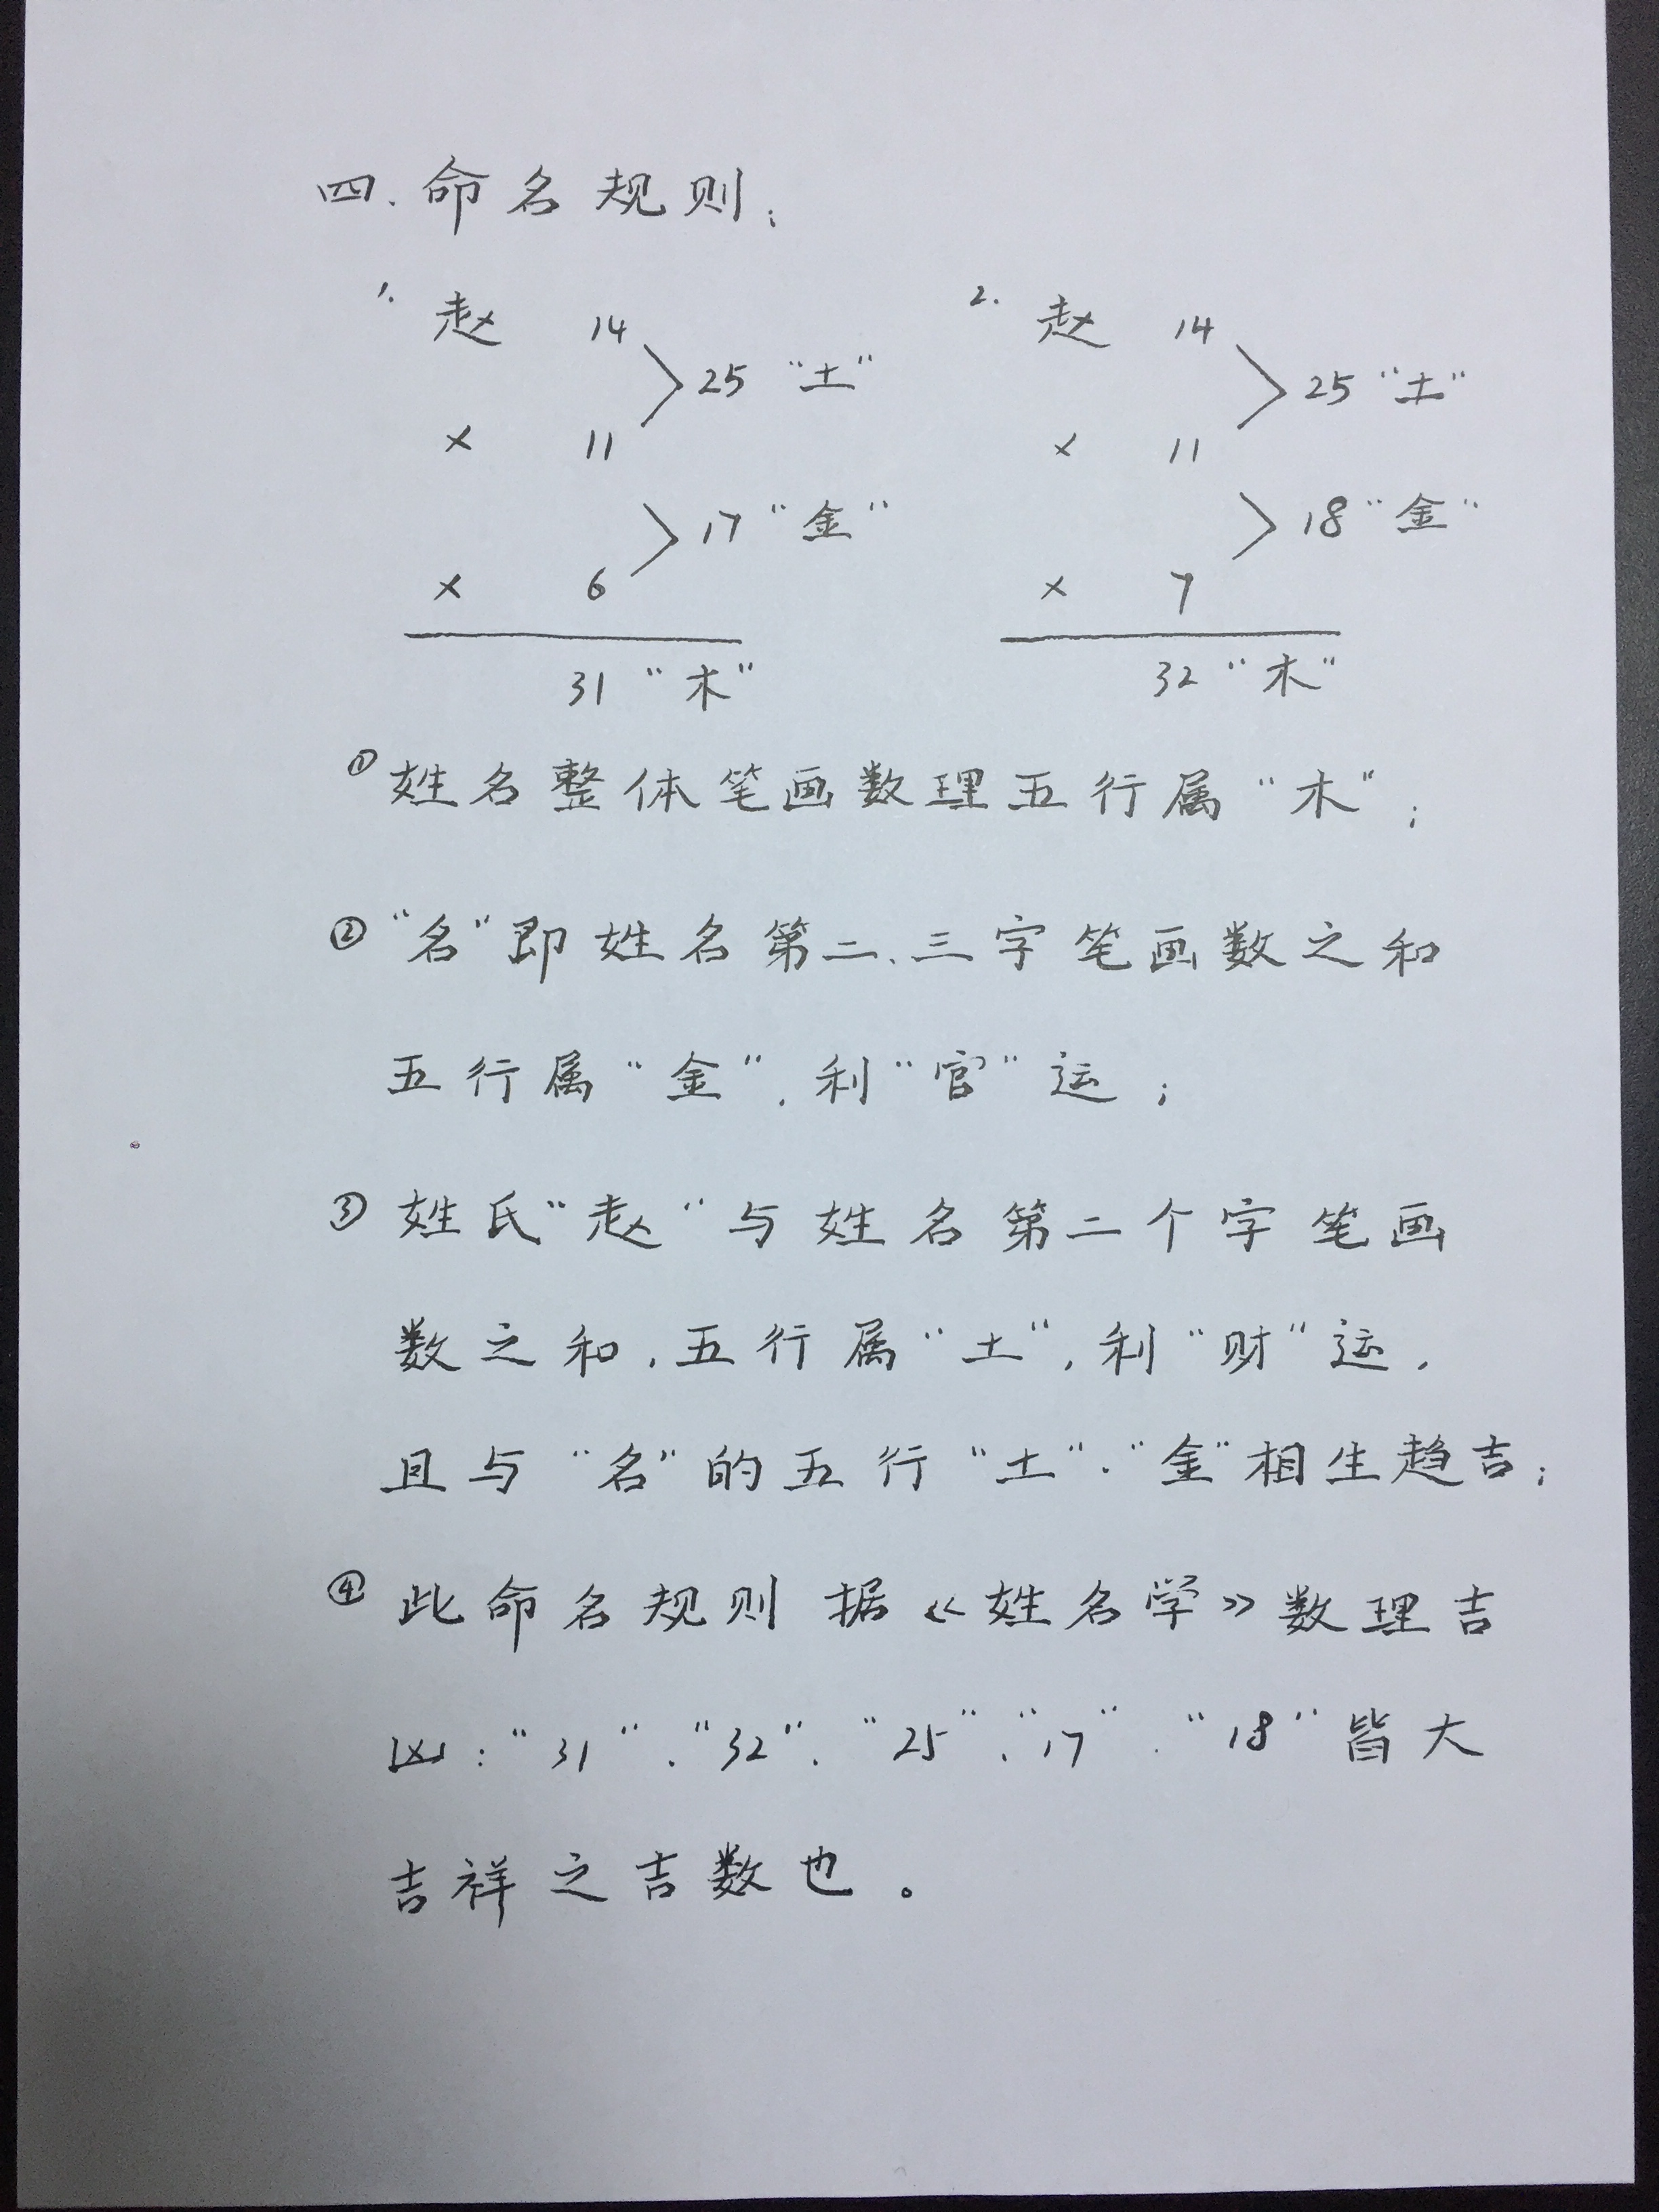 四、命名规则:
1. 赵 14 2. 赵 14
25 “土” 25 “土”
× 11 × 11
17 “金” 18 “金”
× 6 × 7
31 “木” 32 “木”
① 姓名整体笔画数理五行属“木”;
② “名”即姓名第二、三字笔画数之和
五行属“金”,利“官”运;
③ 姓氏“赵”与姓名第二个字笔画
数之和,五行属“土”,利“财”运,
且与“名”的五行“土”、“金”相生趋吉;
④ 此命名规则据《姓名学》数理吉
凶:“31”、“32”、“25”、“17”、“18”皆大
吉祥之吉数也。